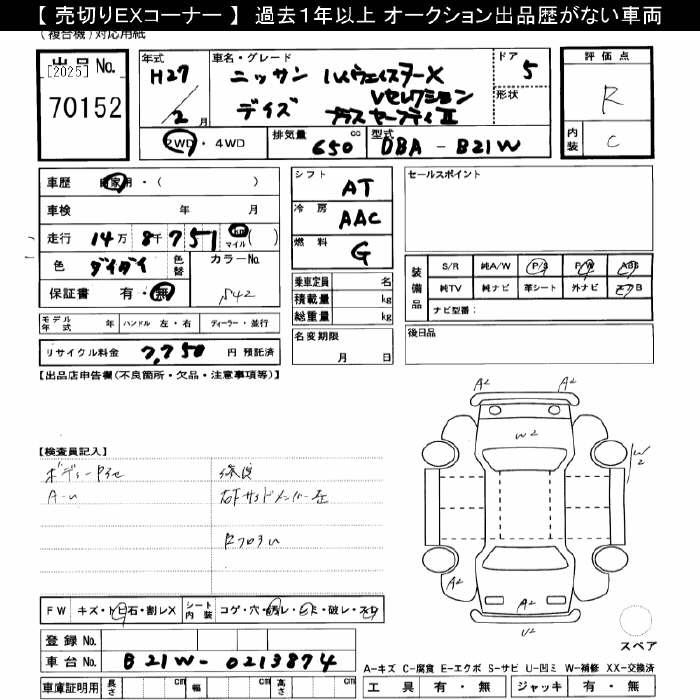 【 売切りEXコーナー 】 過去１年以上 オークション出品歴がない車両
(複合機)対応用紙
出品 No.
[2025]
70152
年式 H27 / 2 月
車名・グレード
ニッサン ハイウェイスターX
デイズ Vセレクション
プラスセーフティII
ドア 5
形状
評価点
R
内装 C
2WD・4WD
排気量 650 cc
型式 DBA - B21W
車歴 自家用・( )
車検 年 月
走行 14万 8千 751 km マイル ( )
色 ダイダイ 色替 カラーNo.
保証書 有・無
シフト AT
冷房 AAC
燃料 G
乗車定員 名
積載量 kg
総重量 kg
名変期限
月 日
セールスポイント
装備品
S/R 純A/W P/S P/W ABS
純TV 純ナビ 革シート 外ナビ エアB
ナビ型番:
後日品
モデル年式 年 ハンドル 左・右 ディーラー・並行
リサイクル料金 7,750 円 預託済
【出品店申告欄(不良箇所・欠品・注意事項等)】
【検査員記入】
A2 A2
W2
W2
A2 A2
U2
FW キズ・トビ石・割レX
シート内装 コゲ・穴・スレ・シミ・破レ・
登録 No.
車台 No. B21W-0213874
車庫証明用 長さ cm 幅 cm 高さ cm
スペア
A-キズ C-腐食 E-エクボ S-サビ U-凹ミ W-補修 XX-交換済
工具 有・無 ジャッキ 有・無